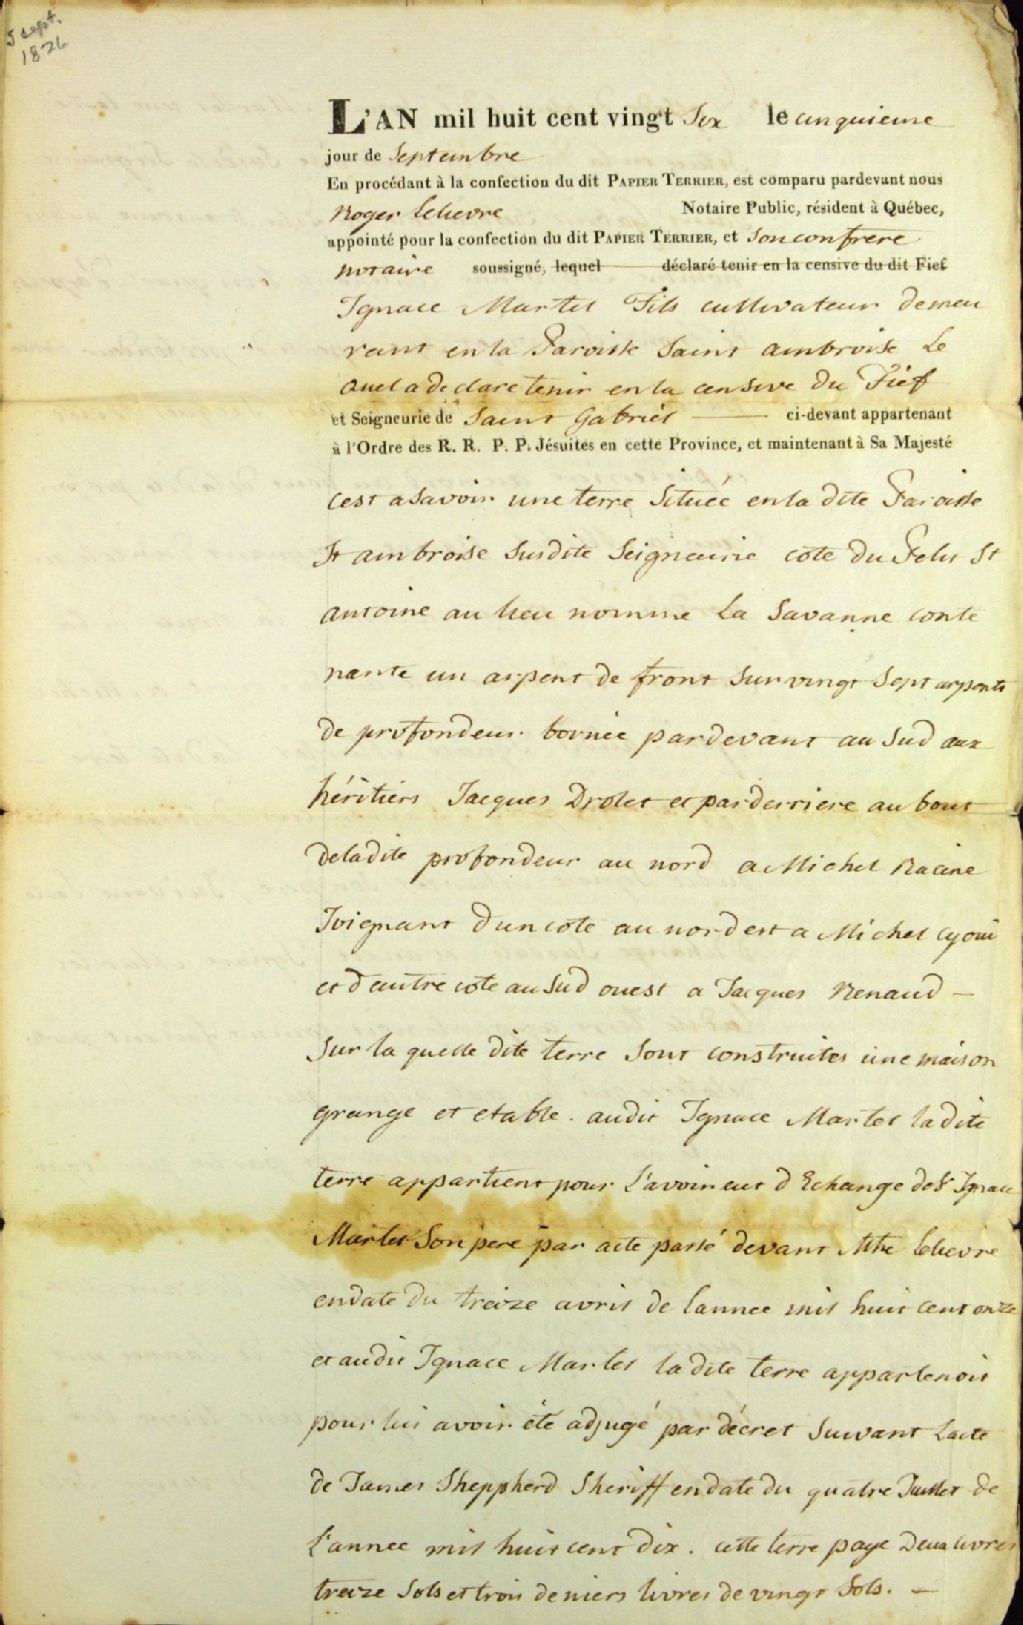 5 sept.
1826
L'AN mil huit cent vingt Six le cinquieme
jour de Septembre
En procédant à la confection du dit PAPIER TERRIER, est comparu pardevant nous
Roger Lelievre Notaire Public, résident à Québec,
appointé pour la confection du dit PAPIER TERRIER, et Son confrere
notaire soussigné, lequel déclaré tenir en la censive du dit Fief
Ignace Martel Fils cultivateur demeu
rant en la Paroisse Saint ambroise Le
quel a declare tenir en la censive du Fief
et Seigneurie de Saint Gabriel ci-devant appartenant
à l'Ordre des R. R. P. P. Jésuites en cette Province, et maintenant à Sa Majesté
cest asavoir une terre Située en la dite Paroisse
St ambroise Susdite Seigneurie cote du St
antoine au lieu nomme La Savanne conte
nante un arpent de front Sur vingt Sept arpents
de profondeur bornée pardevant au Sud aux
héritiers Jacques Drolet et par derriere au bout
deladite profondeur au nord a Michel Racine
Joignant dun cote au nord est a Michel
et dautre cote au Sud ouest a Jacques Renaud —
Sur la quelle dite terre Sont construites une maison
grange et etable. audit Ignace Martel ladite
terre appartient pour L'avoir eut d Echange de Sr Ignace
Martel Son pere par acte passé devant Mtre Lelievre
endate du treize avril de lannee mil huit cent onze
et audit Ignace Martel ladite terre appartenoit
pour lui avoir été adjugé par décret Suivant Lacte
de James Sheppherd Sheriff endate du quatre Juillet de
L'annee mil huit cent dix. cette terre paye Deux livres
treize Sols et trois deniers livres de vingt Sols. —